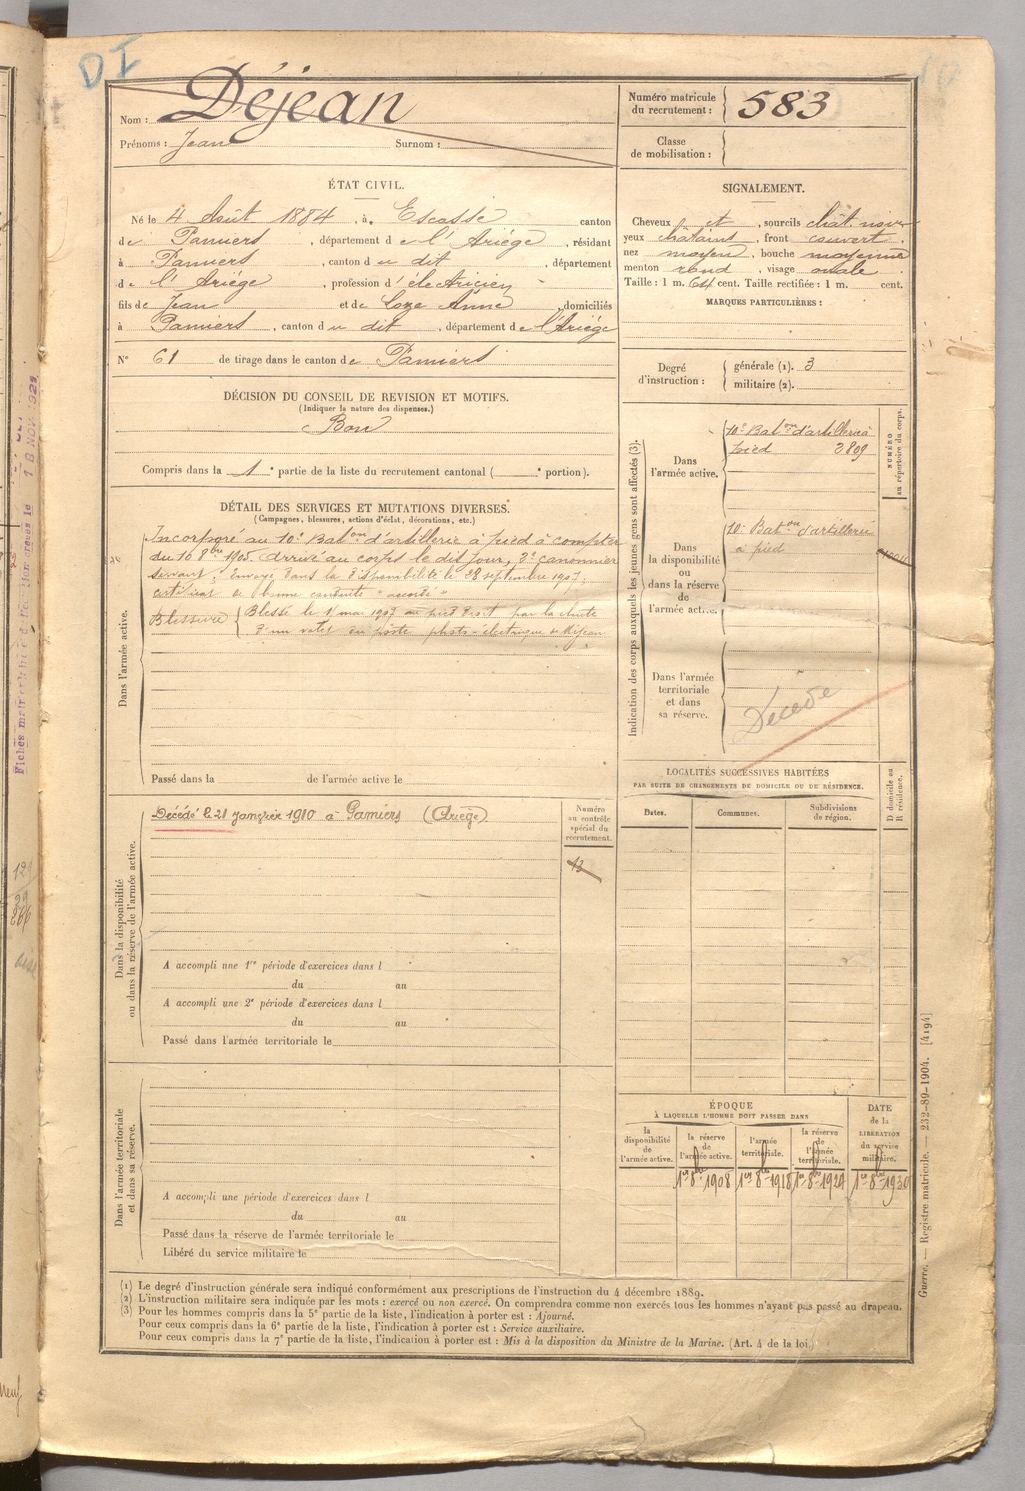 DI
Nom : Déjean
Prénoms : Jean Surnom :
Numéro matricule du recrutement : 583
Classe de mobilisation :
ÉTAT CIVIL.
Né le 4 Août 1884, à Escosse canton
de Pamiers, département de l'Ariège, résidant
à Pamiers, canton du dit, département
de l'Ariège, profession d'électricien
fils de Jean et de Anne domiciliés
à Pamiers, canton du dit, département de l'Ariège
N° 61 de tirage dans le canton de Pamiers
SIGNALEMENT.
Cheveux et, sourcils chât. noir
yeux châtains, front couvert,
nez moyen, bouche moyenne
menton rond, visage ovale
Taille : 1 m. 64 cent. Taille rectifiée : 1 m. cent.
MARQUES PARTICULIÈRES :
Degré d'instruction :
générale (1). 3
militaire (2).
DÉCISION DU CONSEIL DE REVISION ET MOTIFS.
(Indiquer la nature des dispenses.)
Bon
Compris dans la 1e partie de la liste du recrutement cantonal ( e portion).
DÉTAIL DES SERVICES ET MUTATIONS DIVERSES.
(Campagnes, blessures, actions d'éclat, décorations, etc.)
Dans l'armée active.
Incorporé au 10e Baton d'artillerie à pied à compter
du 10 8bre 1905. Arrivé au corps le dit jour, 2e canonnier
servant; Envoyé dans la disponibilité le 28 septembre 1907;
certificat de bonne conduite "accordé"
Blessure { Blessé le 1 mai 1907 au pied droit par la chute
d'un volet du poste photo-électrique de
Passé dans la de l'armée active le
Indication des corps auxquels les jeunes gens sont affectés (3).
Dans l'armée active.
10e Baton d'artillerie à
pied 3809
Dans la disponibilité ou dans la réserve de l'armée active.
10e Baton d'artillerie
à pied
Dans l'armée territoriale et dans sa réserve.
Décédé
NUMÉRO au répertoire du corps.
LOCALITÉS SUCCESSIVES HABITÉES
PAR SUITE DE CHANGEMENTS DE DOMICILE OU DE RÉSIDENCE.
Dates. Communes. Subdivisions de région.
D domicile ou R résidence.
Dans la disponibilité ou dans la réserve de l'armée active.
Décédé le 21 janvier 1910 à Pamiers (Ariège)
Numéro au contrôle spécial du recrutement.
13
A accompli une 1re période d'exercices dans l
du au
A accompli une 2e période d'exercices dans l
du au
Passé dans l'armée territoriale le
Dans l'armée territoriale et dans sa réserve.
A accompli une période d'exercices dans l
du au
Passé dans la réserve de l'armée territoriale le
Libéré du service militaire le
ÉPOQUE
À LAQUELLE L'HOMME DOIT PASSER DANS
la disponibilité de l'armée active.
la réserve de l'armée active.
l'armée territoriale.
la réserve de l'armée territoriale.
DATE de la LIBÉRATION du service militaire.
1er 8bre 1908 1er 8bre 1918 1er 8bre 1924 1er 8bre 1930
(1) Le degré d'instruction générale sera indiqué conformément aux prescriptions de l'instruction du 4 décembre 1889.
(2) L'instruction militaire sera indiquée par les mots : exercé ou non exercé. On comprendra comme non exercés tous les hommes n'ayant pas passé au drapeau.
(3) Pour les hommes compris dans la 5e partie de la liste, l'indication à porter est : Ajourné.
Pour ceux compris dans la 6e partie de la liste, l'indication à porter est : Service auxiliaire.
Pour ceux compris dans la 7e partie de la liste, l'indication à porter est : Mis à la disposition du Ministre de la Marine. (Art. 4 de la loi.)
Guerre. — Registre matricule. — 232-89-1904. [4194]